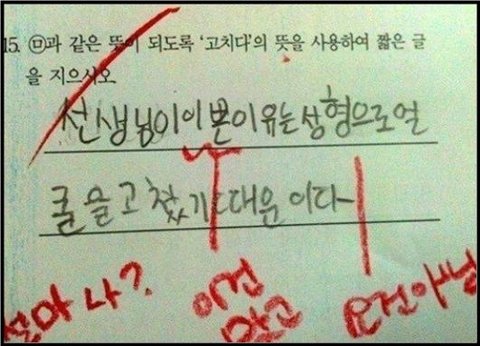 15. ㉤과 같은 뜻이 되도록 '고치다'의 뜻을 사용하여 짧은 글
을 지으시오
선생님이 이쁜이유는 성형으로 얼
굴을 고쳤기 때문이다
설마 나?
이건 맞고
요건 아님